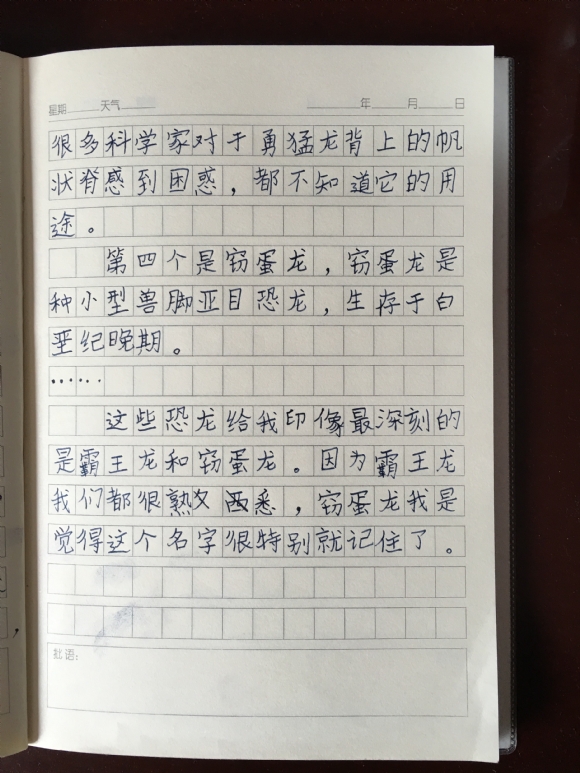 星期 天气 年 月 日
很多科学家对于勇猛龙背上的帆
状脊感到困惑，都不知道它的用
途。
第四个是窃蛋龙，窃蛋龙是
种小型兽脚亚目恐龙，生存于白
垩纪晚期。
……
这些恐龙给我印像最深刻的
是霸王龙和窃蛋龙。因为霸王龙
我们都很熟悉，窃蛋龙我是
觉得这个名字很特别就记住了。
批语：